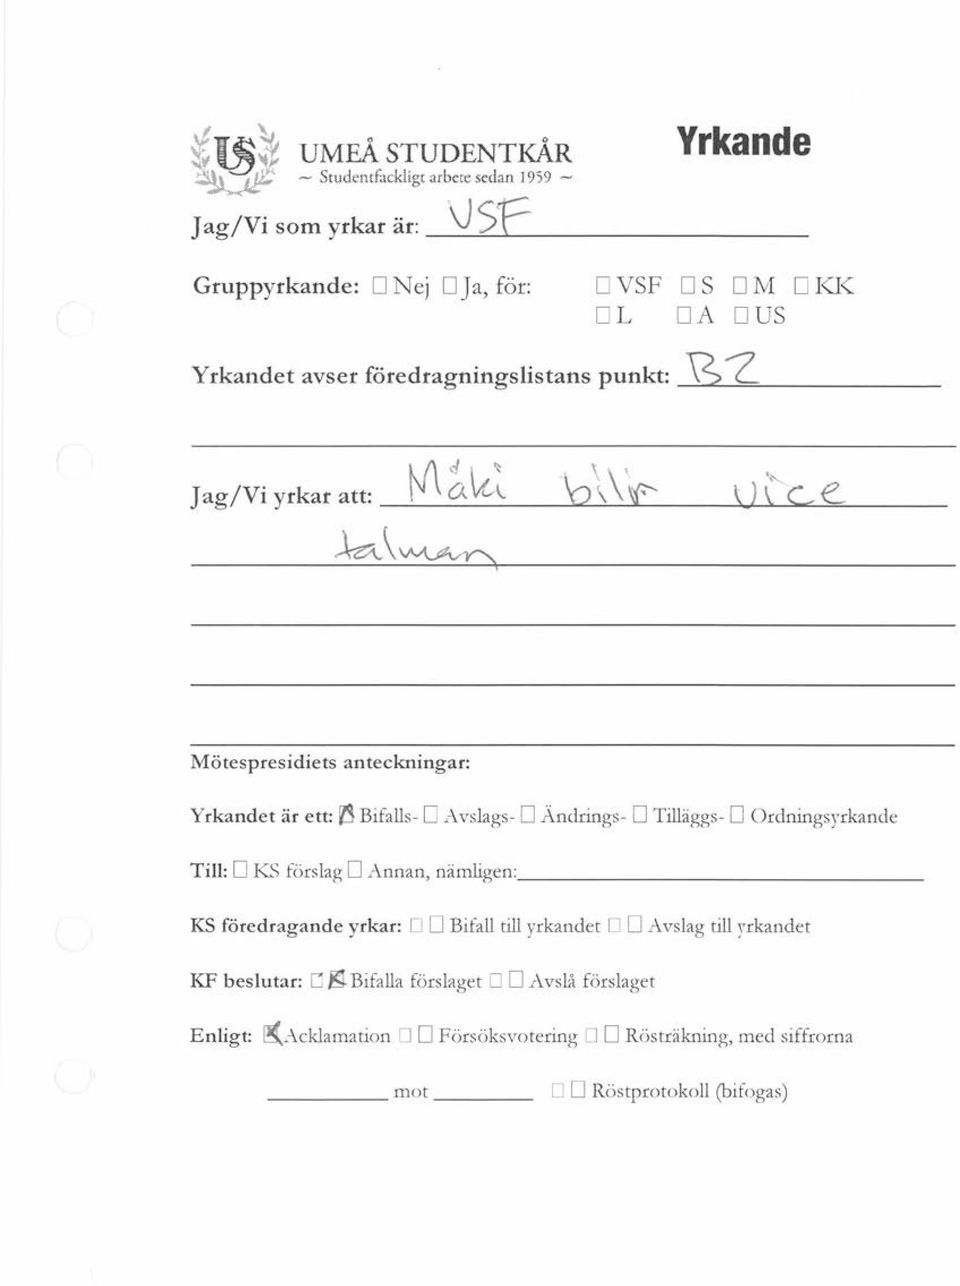 US
UMEÅ STUDENTKÅR
~ Studentfackligt arbete sedan 1959 ~
Yrkande
Jag/Vi som yrkar är: VSF
Gruppyrkande: ☐ Nej ☐ Ja, för: ☐ VSF ☐ S ☐ M ☐ KK
☐ L ☐ A ☐ US
Yrkandet avser föredragningslistans punkt: B2
Jag/Vi yrkar att: Mäki bilir vice
talman
Mötespresidiets anteckningar:
Yrkandet är ett: ☒ Bifalls- ☐ Avslags- ☐ Ändrings- ☐ Tilläggs- ☐ Ordningsyrkande
Till: ☐ KS förslag ☐ Annan, nämligen:
KS föredragande yrkar: ☐ ☐ Bifall till yrkandet ☐ ☐ Avslag till yrkandet
KF beslutar: ☐ ☒ Bifalla förslaget ☐ ☐ Avslå förslaget
Enligt: ☒ Acklamation ☐ ☐ Försöksvotering ☐ ☐ Rösträkning, med siffrorna
mot ☐ ☐ Röstprotokoll (bifogas)